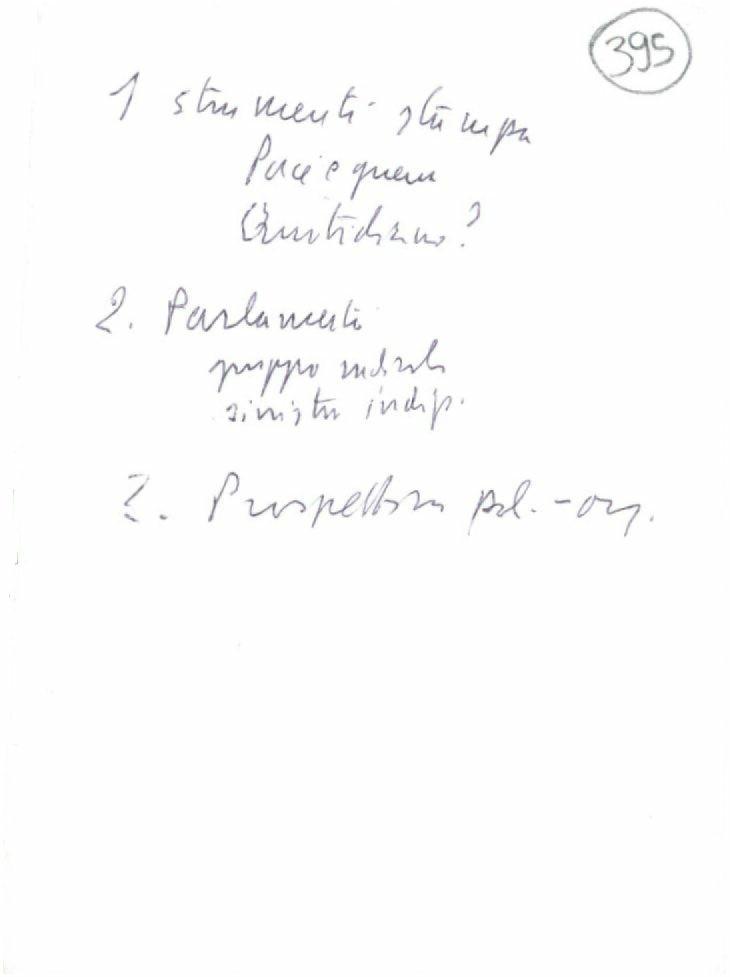 395
1 strumenti stampa
Pace e guerra
Quotidiano?
2. Parlamento
gruppo
sinistra indip.
3. Prospettiva pol. - org.